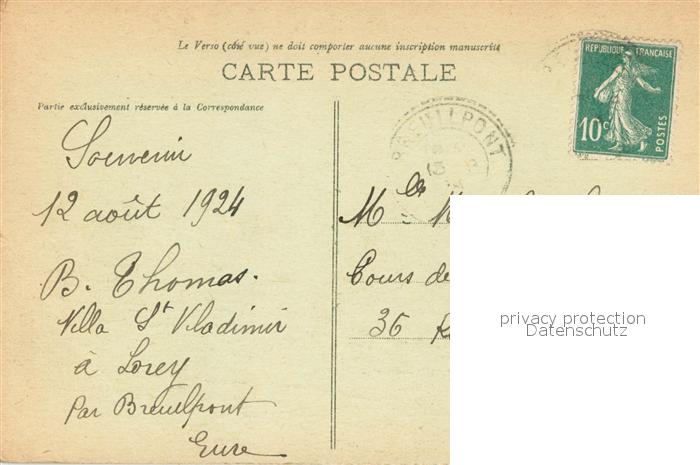 Le Verso (côté vue) ne doit comporter aucune inscription manuscrite
CARTE POSTALE
Partie exclusivement réservée à la Correspondance
Souvenir
12 août 1924
B. Thomas.
Villa St Vladimir
à Lorey
Par Breuilpont
Eure
BREUILPONT
RÉPUBLIQUE FRANÇAISE
10c
POSTES
Mlle
Cours de
36
privacy protection
Datenschutz